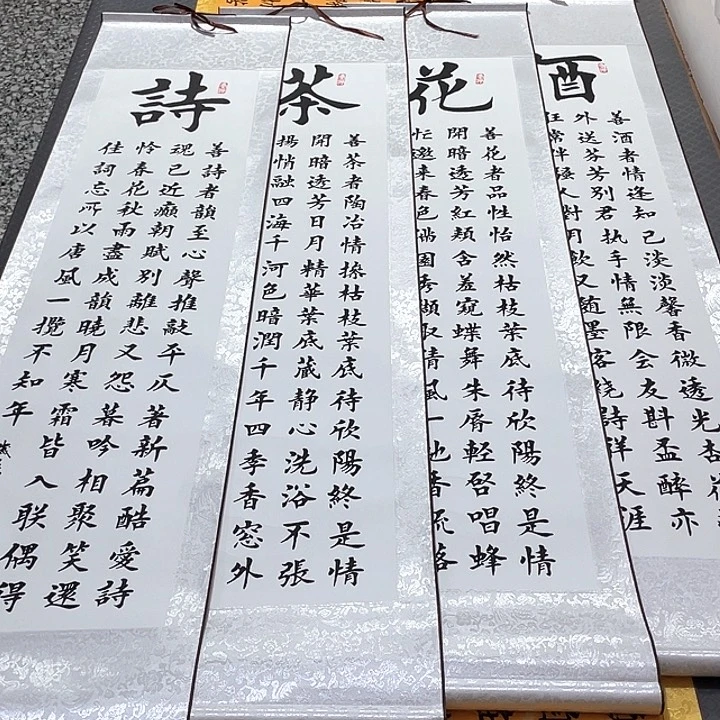 酒
善酒者情逢知己淡淡馨香微透光杏花
外送芬芳别君执手情無限会友斟盃醉亦
狂常伴騷人對月飲又随墨客绕詩祥天涯
花
善花者品性怡然枯枝葉底待欣陽終是情
開暗透芳紅頬含羞窺蝶舞朱唇輕啓唱蜂
忙邀来春色佛園秀擷取清風一地香流落
茶
善茶者陶冶情操枯枝葉底待欣陽終是情
開暗透芳日月精華葉底蔵静心洗浴不張
揚悄融四海千河色暗潤千年四季香窓外
詩
善詩者韻至心聲推敲平仄著新篇酷愛詩
魂已近癲朝賦别離悲又怨暮吟相聚笑還
怜春花秋雨盡成韻曉月寒霜皆入联偶得
佳詞忘所以唐風一攬不知年